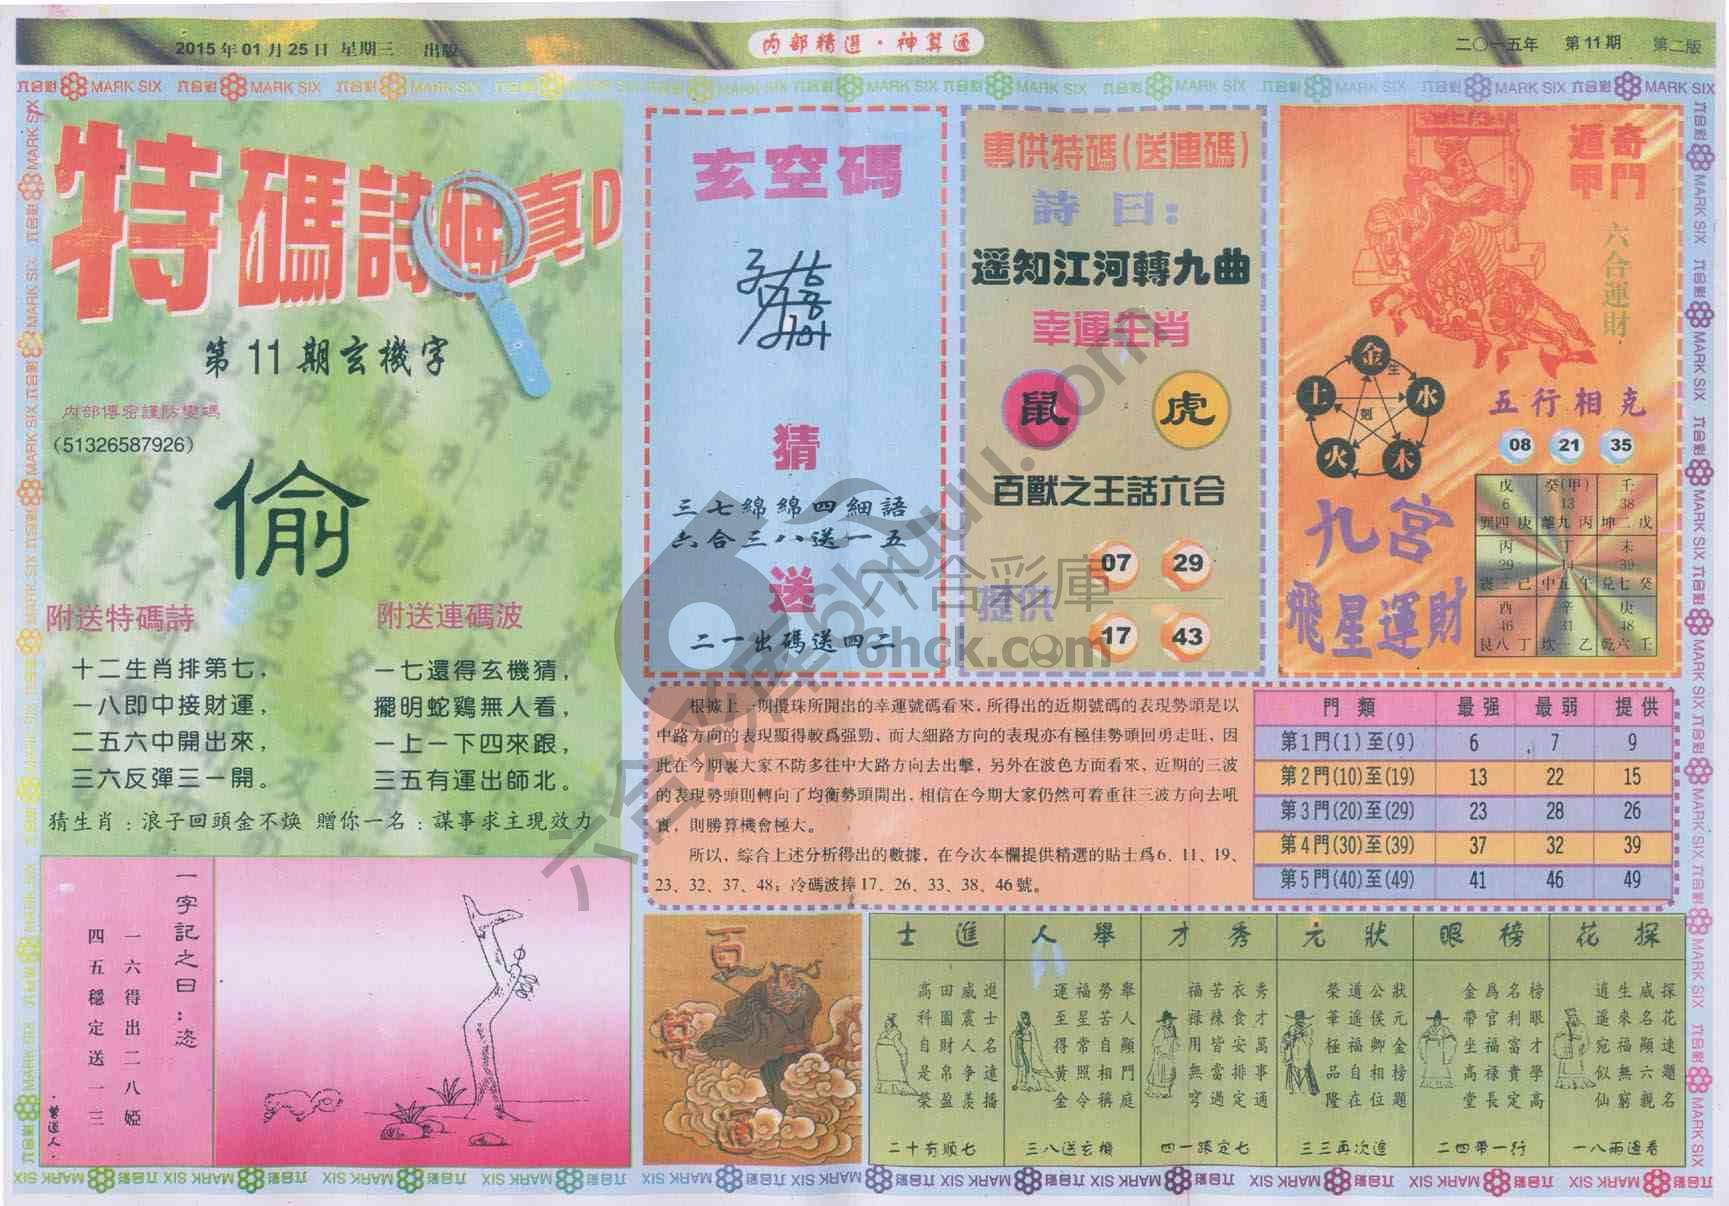 2015年01月25日 星期三 出版
内部精選·神算通
二〇一五年 第11期 第二版
六合彩 MARK SIX
特碼詩
真D
第11期玄機字
内部傳密謹防變碼
(51326587926)
偷
附送特碼詩
十二生肖排第七，
一八即中接財運，
二五六中開出來，
三六反彈三一開。
附送連碼波
一七還得玄機猜，
擺明蛇鷄無人看，
一上一下四來跟，
三五有運出師北。
猜生肖：浪子回頭金不焕 贈你一名：謀事求主現效力
一字記之曰：恣
一六得出二八婭
四五穩定送一三
·曾道人·
玄空碼
猜
三七綿綿四細語
六合三八送一五
送
二一出碼送四二
專供特碼(送連碼)
詩曰：
遥知江河轉九曲
幸運生肖
鼠 虎
百獸之王話六合
提供
07 29
17 43
奇門遁甲
六合運財
金 水 木 火 土
生 剋
五行相克
08 21 35
九宫
飛星運財
戊 癸(甲) 壬
6 13 38
巽四庚 離九丙 坤二戊
丙 丁 未
29 14 39
震三己 中五午 兑七癸
酉 辛 庚
46 31 48
艮八丁 坎一乙 乾六壬
根據上一期攪珠所開出的幸運號碼看來，所得出的近期號碼的表現勢頭是以
中路方向的表現顯得較爲强勁，而大細路方向的表現亦有極佳勢頭回勇走旺，因
此在今期裏大家不防多往中大路方向去出擊，另外在波色方面看來，近期的三波
的表現勢頭則轉向了均衡勢頭開出，相信在今期大家仍然可着重往三波方向去吼
實，則勝算機會極大。
所以，綜合上述分析得出的數據，在今次本欄提供精選的貼士爲6、11、19、
23、32、37、48；冷碼波捧17、26、33、38、46號。
門類 最强 最弱 提供
第1門(1)至(9) 6 7 9
第2門(10)至(19) 13 22 15
第3門(20)至(29) 23 28 26
第4門(30)至(39) 37 32 39
第5門(40)至(49) 41 46 49
百
進士
進士名連播
威震争羡
田園財帛盈
高科自是荣
二十有順七
舉人
舉人顯門庭
勞苦自相稱
福星常照令
運至得黄金
三八送玄機
秀才
秀才萬事通
衣食安排定
苦辣皆當過
福禄用無穹
四一跟定七
狀元
狀元金榜題
公侯卿相位
道遥福自在
榮華極品隆
三三再次進
榜眼
榜眼才學高
名利富貴定
爲官福禄長
金帶坐高堂
二四帶一行
探花
探花連題名
威名顯六親
生來福無窮
逍遥宛似仙
一八兩邊看
六合彩庫
6hck.com